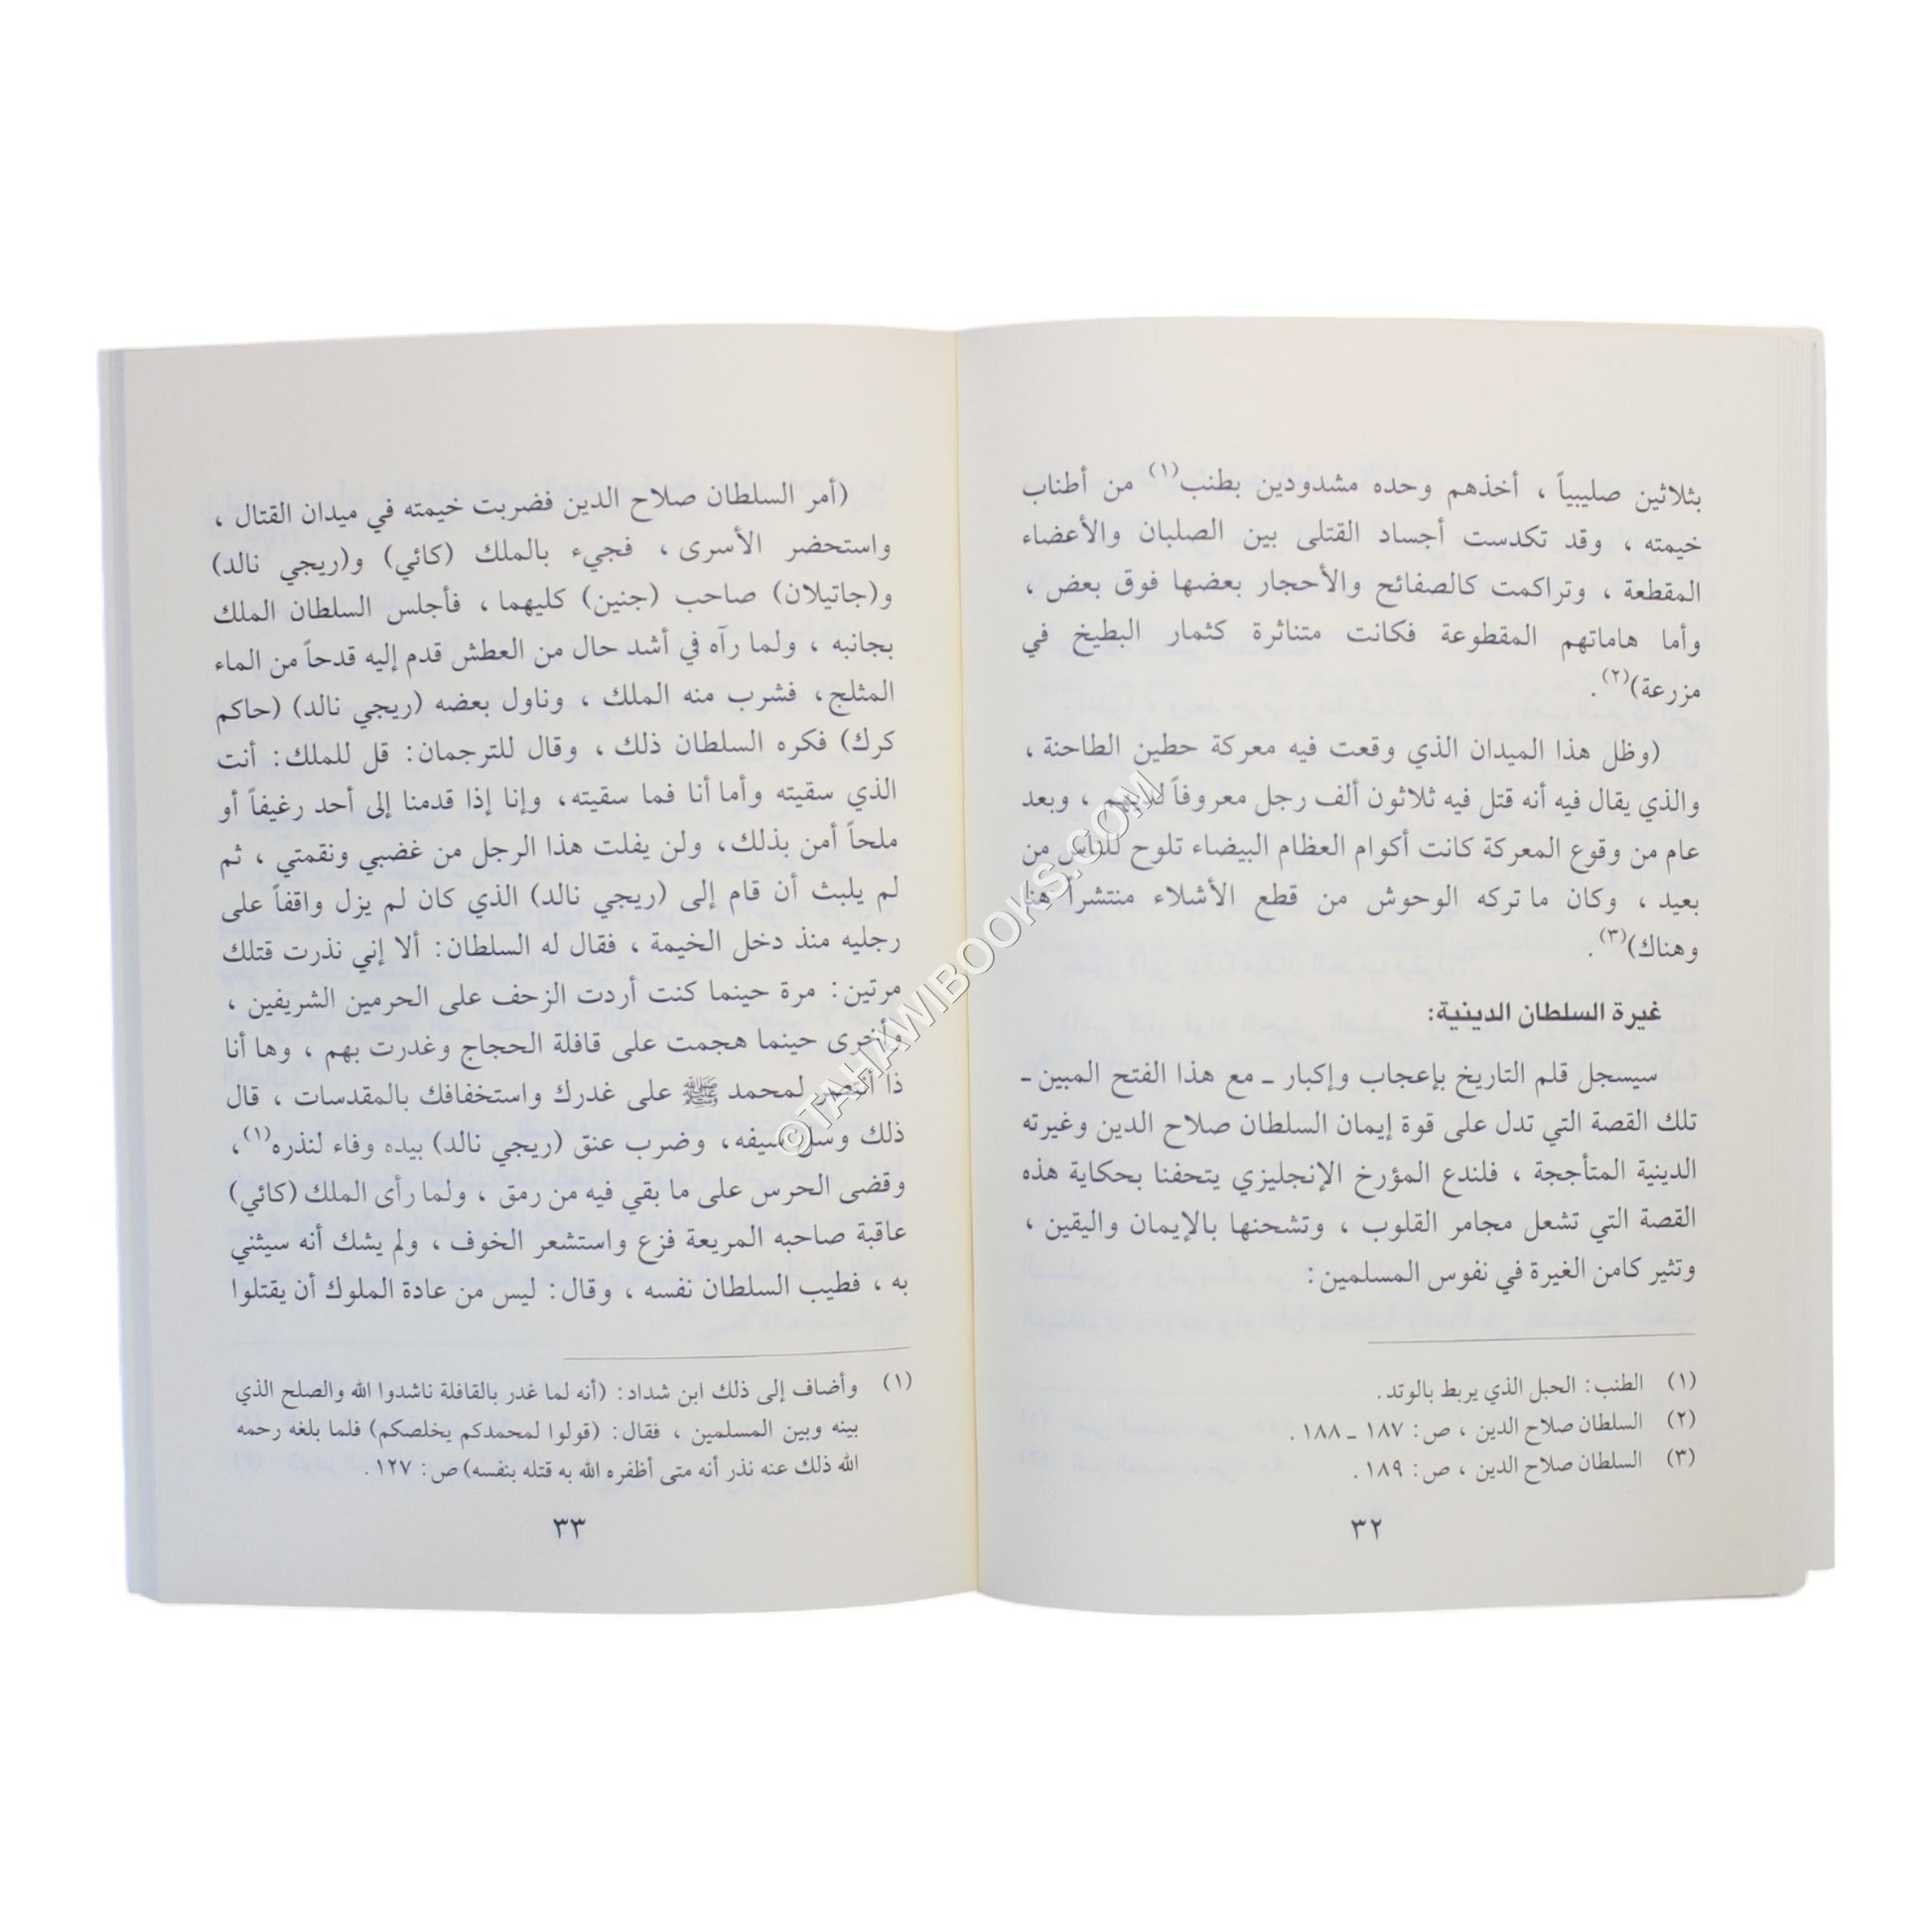 بثلاثين صليبياً ، أخذهم وحده مشدودين بطنب(١) من أطناب
خيمته ، وقد تكدست أجساد القتلى بين الصلبان والأعضاء
المقطعة ، وتراكمت كالصفائح والأحجار بعضها فوق بعض ،
وأما هاماتهم المقطوعة فكانت متناثرة كثمار البطيخ في
مزرعة)(٢) .
(وظل هذا الميدان الذي وقعت فيه معركة حطين الطاحنة ،
والذي يقال فيه أنه قتل فيه ثلاثون ألف رجل معروفاً لديهم ، وبعد
عام من وقوع المعركة كانت أكوام العظام البيضاء تلوح للناس من
بعيد ، وكان ما تركه الوحوش من قطع الأشلاء منتشراً هنا
وهناك)(٣) .
غيرة السلطان الدينية:
سيسجل قلم التاريخ بإعجاب وإكبار ـ مع هذا الفتح المبين ـ
تلك القصة التي تدل على قوة إيمان السلطان صلاح الدين وغيرته
الدينية المتأججة ، فلندع المؤرخ الإنجليزي يتحفنا بحكاية هذه
القصة التي تشعل مجامر القلوب ، وتشحنها بالإيمان واليقين ،
وتثير كامن الغيرة في نفوس المسلمين :
(١) الطنب : الحبل الذي يربط بالوتد .
(٢) السلطان صلاح الدين ، ص: ١٨٧ ـ ١٨٨ .
(٣) السلطان صلاح الدين ، ص: ١٨٩ .
٣٢
(أمر السلطان صلاح الدين فضربت خيمته في ميدان القتال ،
واستحضر الأسرى ، فجيء بالملك (كائي) و(ريجي نالد)
و(جاتيلان) صاحب (جنين) كليهما ، فأجلس السلطان الملك
بجانبه ، ولما رآه في أشد حال من العطش قدم إليه قدحاً من الماء
المثلج ، فشرب منه الملك ، وناول بعضه (ريجي نالد) (حاكم
كرك) فكره السلطان ذلك ، وقال للترجمان: قل للملك: أنت
الذي سقيته وأما أنا فما سقيته، وإنا إذا قدمنا إلى أحد رغيفاً أو
ملحاً أمن بذلك، ولن يفلت هذا الرجل من غضبي ونقمتي ، ثم
لم يلبث أن قام إلى (ريجي نالد) الذي كان لم يزل واقفاً على
رجليه منذ دخل الخيمة ، فقال له السلطان: ألا إني نذرت قتلك
مرتين: مرة حينما كنت أردت الزحف على الحرمين الشريفين ،
وأخرى حينما هجمت على قافلة الحجاج وغدرت بهم ، وها أنا
ذا أنتصر لمحمد ﷺ على غدرك واستخفافك بالمقدسات ، قال
ذلك وسل سيفه، وضرب عنق (ريجي نالد) بيده وفاء لنذره(١)،
وقضى الحرس على ما بقي فيه من رمق ، ولما رأى الملك (كائي)
عاقبة صاحبه المريعة فزع واستشعر الخوف ، ولم يشك أنه سيثني
به ، فطيب السلطان نفسه ، وقال: ليس من عادة الملوك أن يقتلوا
(١) وأضاف إلى ذلك ابن شداد: (أنه لما غدر بالقافلة ناشدوا الله والصلح الذي
بينه وبين المسلمين ، فقال: (قولوا لمحمدكم يخلصكم) فلما بلغه رحمه
الله ذلك عنه نذر أنه متى أظفره الله به قتله بنفسه) ص: ١٢٧ .
٣٣
©TAHAWIBOOKS.COM